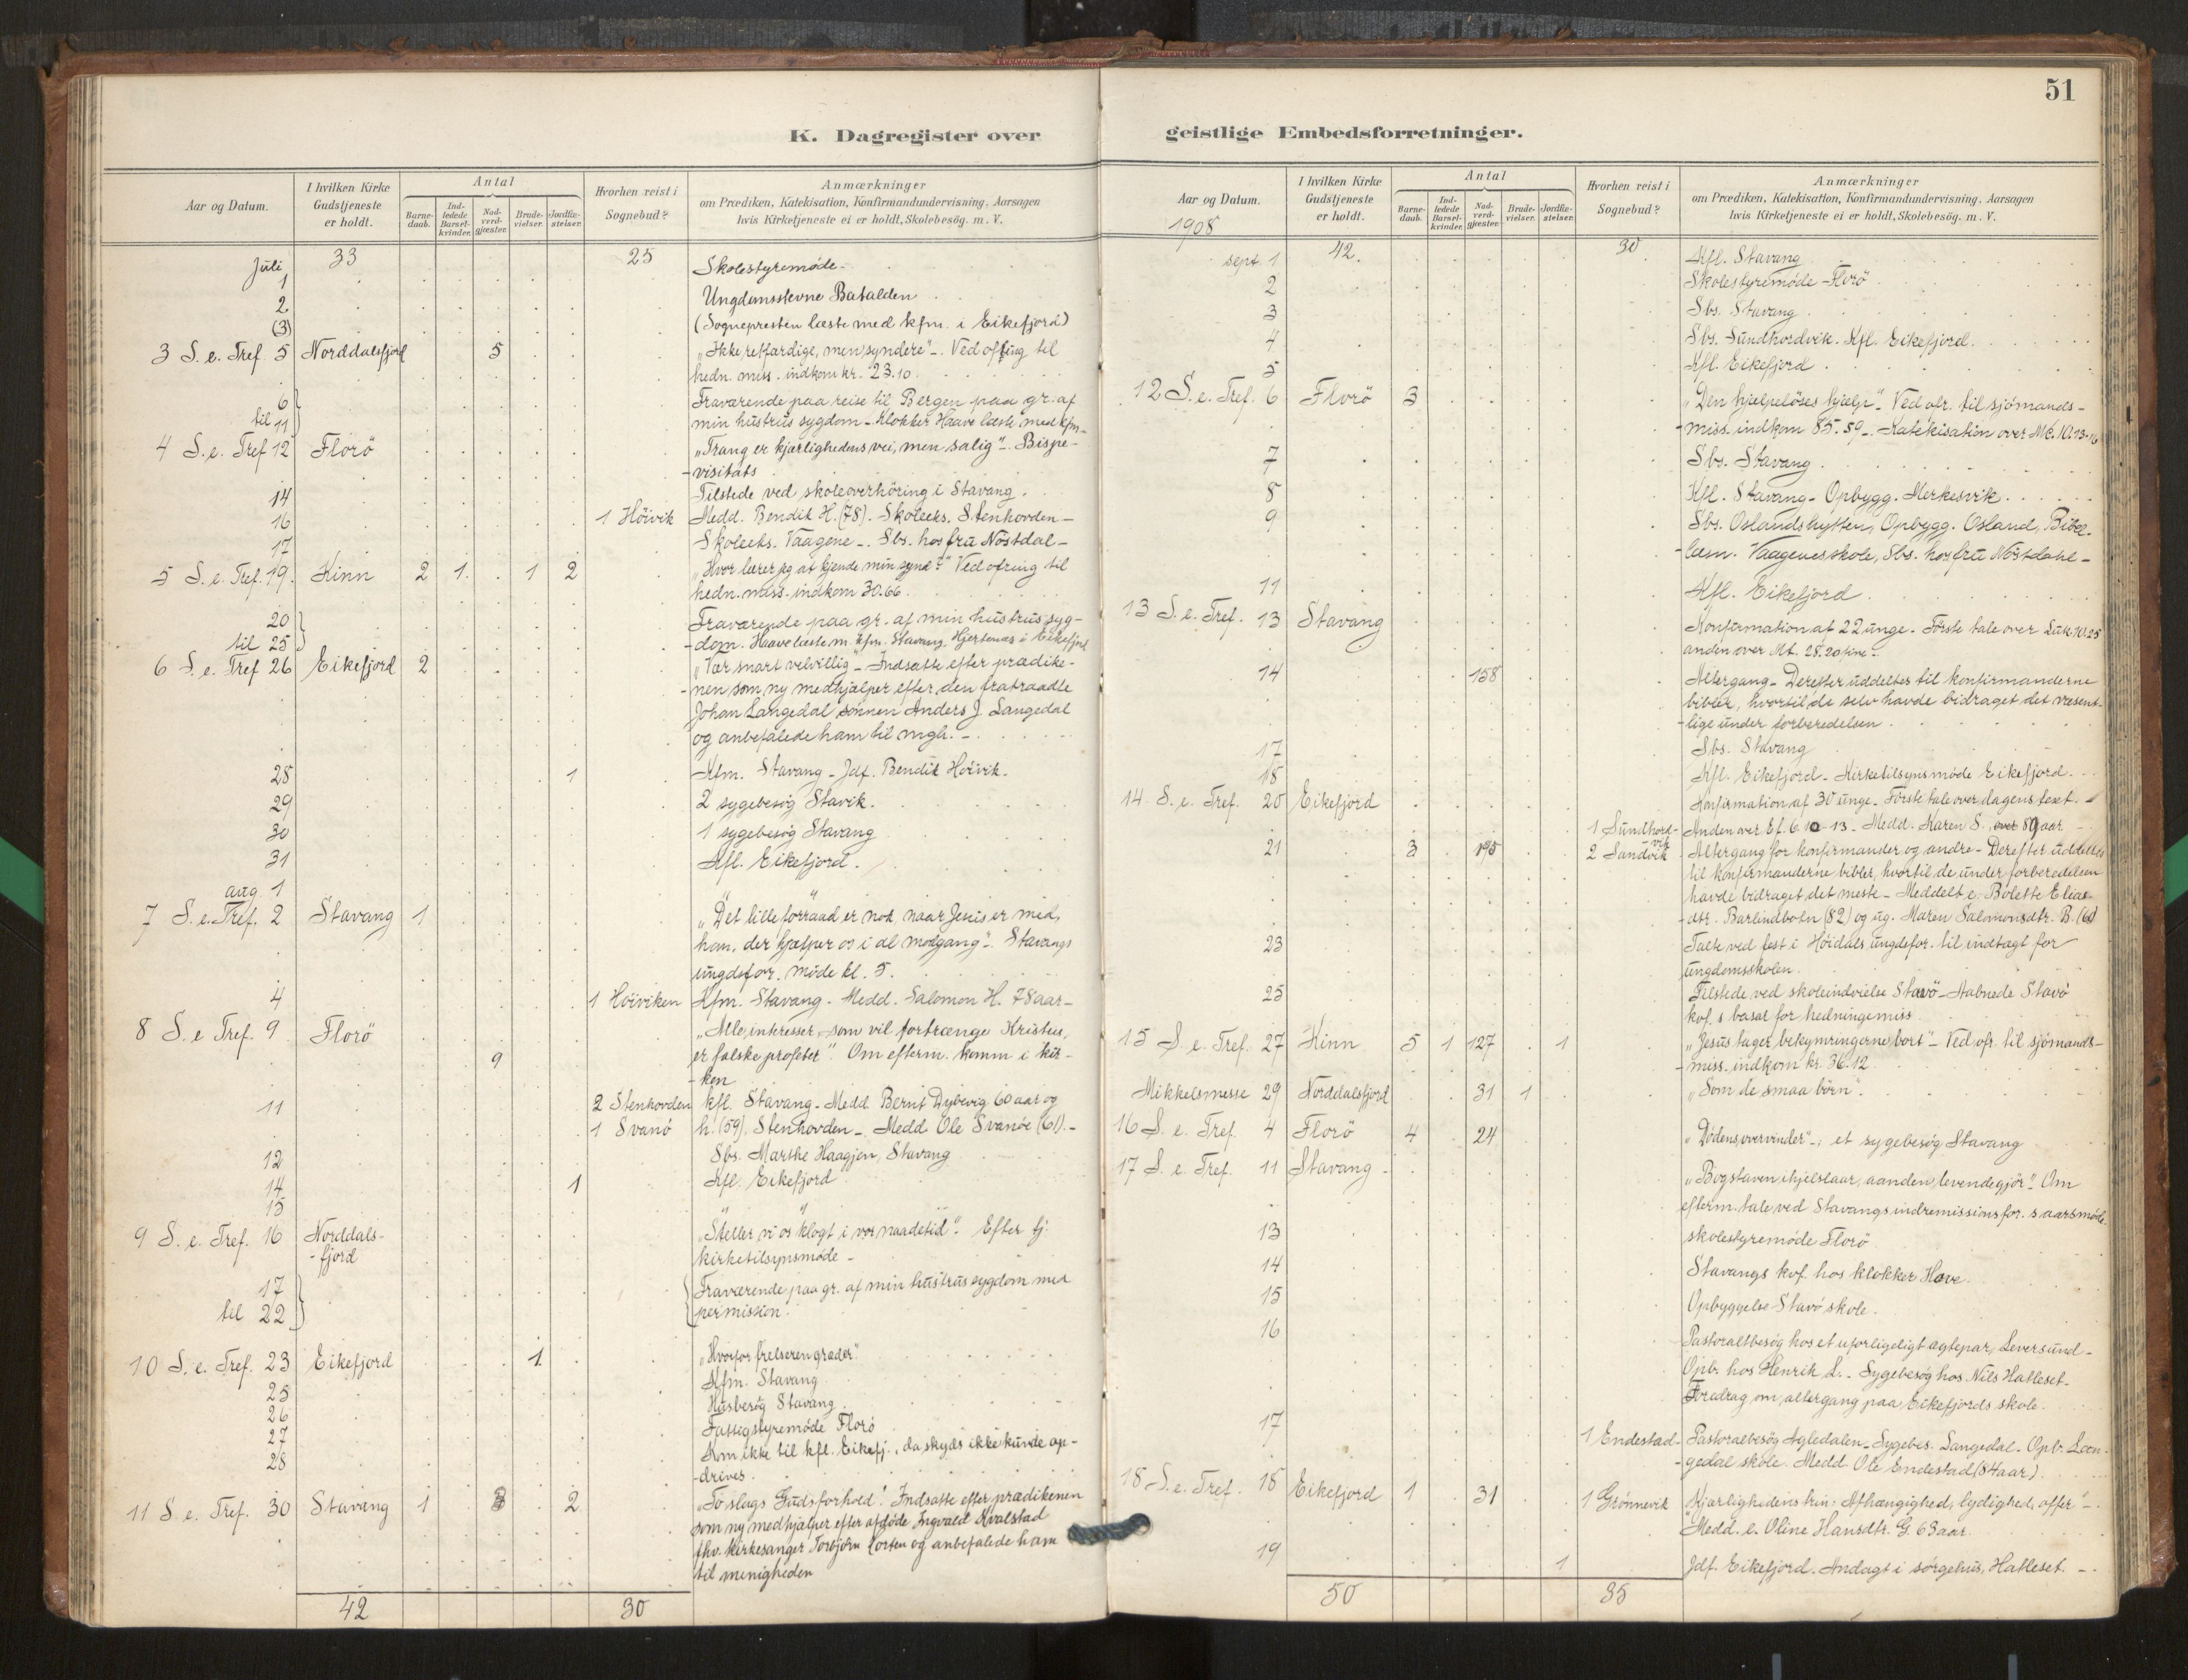 K. Dagregister over
Aar og Datum.
I hvilken Kirke Gudstjeneste er holdt.
Antal
Barnedaab.
Indledede Barselkvinder.
Nadverdgjæster.
Brudevielser.
Jordfæstelser.
Hvorhen reist i Sognebud?
Anmærkninger
om Prædiken, Katekisation, Konfirmandundervisning, Aarsagen
hvis Kirketjeneste ei er holdt, Skolebesög. m. V.
33 25
Juli 1 Skolestyremöde.
2 Ungdomsstevne Batalden
(3) (Sognepresten læste med kfm. i Eikefjord)
3 S. e. Tref 5 Norddalsfjord 5 „Ikke retfærdige, men syndere" - Ved ofring til
hedn. miss. indkom kr. 23.10
6 Fraværende paa reise til Bergen paa gr. af
til 11 min hustrus sygdom - Klokker Haave læste med kfm -
4 S. e. Tref 12 Florö „Trang er kjærlighedens vei, men salig" - Bispe-
-visitats
14 Tilstede ved skoleoverhöring i Stavang.
16 1 Höivik Medd. Bendik H. (78). Skoleeks. Stenhovden -
17 Skoleeks. Vaagene -. Sbs. hos fru Nöstdal -
5 S. e. Tref. 19. Kinn 2 1 1 2 „Hvor lærer jeg at kjende min synd?" Ved ofring til
hedn. miss. indkom 30.66
20 Fraværende paa gr. af min hustrus syg-
til 25 -dom. Haave læste m. kfm. Stavang, Hjertenæs i Eikefjord
6 S. e. Tref 26 Eikefjord 2 „Vær snart velvillig - Indsatte efter prædike-
-nen som ny medhjælper efter den fratraadte
Johan Langedal sönnen Anders J. Langedal
og anbefalede ham til mgh. -
28 1 Kfm. Stavang - Jdf. Bendik Höivik.
29 2 sygebesög Stavik.
30 1 sygebesög Stavang
31 Kfl. Eikefjord.
aug 1 " "
7 S. e. Tref. 2 Stavang 1 „Det lille forraad er nok naar Jesus er med,
han, der hjælper os i al modgang" - Stavangs
ungdsfor. möde kl. 5.
4 1 Höiviken Kfm. Stavang. Medd. Salomon H. 78 aar -
8 S. e Tref. 9 Florö 9 „Alle interesser, som vil fortrænge Kristus,
er falske profeter". Om efterm. komm i kir-
-ken
11 2 Stenhovden kfl. Stavang - Medd. Bernt Dybevig 60 aar og
1 Svanö h. (59), Stenhovden - Medd Ole Svanöe (61). -
12 Sbs. Marthe Haagjen, Stavang
14 1 Kfl. Eikefjord
15 " "
9 S. e. Tref. 16 Norddals- „Steller vi os klogt i vor naadetid". Efter tj.
-fjord kirketilsynsmöde -
17 Fraværende paa gr. af min hustrus sygdom med
til 22 permission.
10 S. e. Tref. 23 Eikefjord 1 „Hvorfor frelseren græder"
25 Kfm. Stavang
26 Husbesög Stavang
27 Fattigstyremöde Florö
28 Kom ikke til kfl. Eikefj., da skyds ikke kunde op-
-drives.
11 S e. Tref. 30 Stavang 1 3 2 „To slags Gudsforhold". Indsatte efter prædikenen
som ny medhjælper efter afdöde Ingvald Kvalstad
fhv. kirkesanger Torbjörn Lorten og anbefalede ham
til menigheden
42 30
51
geistlige Embedsforretninger.
Aar og Datum.
I hvilken Kirke Gudstjeneste er holdt.
Antal
Barnedaab.
Indledede Barselkvinder.
Nadverdgjæster.
Brudevielser.
Jordfæstelser.
Hvorhen reist i Sognebud?
Anmærkninger
om Prædiken, Katekisation, Konfirmandundervisning, Aarsagen
hvis Kirketjeneste ei er holdt, Skolebesög. m. V.
1908
42. 30
sept. 1 Kfl. Stavang
2 Skolestyremöde - Florö
3 Sbs. Stavang
4 Sbs. Sundhordvik. Kfl. Eikefjord.
5 Kfl. Eikefjord
12 S. e. Tref. 6 Florö 3 „Den hjælpelöses hjælp" - Ved ofr. til sjömands-
-miss. indkom 85.59 -. Katekisation over Mc. 10.13-16
7 Sbs. Stavang
8 Kfl. Stavang - Opbygg. Merkesvik
9 Sbs. Oslandshytten, Opbygg. Osland, Bibel-
-læsn. Vaagenesskole, Sbs. hos fru Nöstdahl -
11 Kfl. Eikefjord
13 S. e. Tref. 13 Stavang Konfirmation af 22 unge. Förste tale over Luk. 10.25
anden over Mt. 28.20 fine -
14 158 Altergang - Derefter uddeltes til konfirmanderne
bibler, hvortil de selv havde bidraget det væsent-
-lige under forberedelsen
17 Sbs. Stavang
18 Kfl. Eikefjord - Kirketilsynsmöde Eikefjord.
14 S. e. Tref. 20 Eikefjord Konfirmation af 30 unge. Förste tale over dagens text. -
1 Sundhord-vik Anden over Ef. 6.10-13 - Medd. Karen S. over 89 aar
21 3 195 2 Sandvik Altergang for konfirmander og andre - Derefter uddeltes
til konfirmanderne bibler, hvortil de under forberedelsen
havde bidraget det meste - Meddelt e. Bolette Elias-
-dtr. Barlindbotn (82) og ug. Maren Salomonsdtr. B. (60)
23 Talte ved fest i Höidals ungdsfor. til indtægt for
ungdomsskolen.
25 Tilstede ved skoleindvielse Stavö - Aabnede Stavö
kvf. s basar for hedningemiss.
15 S. e. Tref. 27 Kinn 5 1 127 1 „Jesus tager bekymringerne bort" - Ved ofr. til sjömands-
-miss. indkom kr. 36.12
Mikkelsmesse 29 Norddalsfjord 31 1 „Som de smaa börn".
16 S. e. Tref. 4 Florö 4 24 „Dödens overvinder" -; et sygebesög Stavang
17 S. e. Tref. 11 Stavang - „Bogstaven ihjelslaar, aanden levendegjör" - Om
efterm. tale ved Stavangs indremissionsfor. s aarsmöde
13 skolestyremöde Florö
14 Stavangs kvf. hos klokker Have.
15 Opbyggelse Stavö skole.
16 Pastoraltbesög hos et uforligeligt ægtepar, Leversund -
Opb. hos Henrik L. - Sygebesög hos Nils Hatleset -
Foredrag om altergang paa Eikefjords skole.
17 1 Endestad - Pastoralbesög Agledalen - Sygebes. Langedal - Opb. Lan-
-gedal skole. Medd. Ole Endestad (84 aar).
18 S. e. Tref. 18 Eikefjord 1 31 1 Grönnevik „Kjærlighedens trin: Afhængighed, lydighed, offer" -
Medd. e. Oline Hansdtr. G. 63 aar.
19 1 Jdf. Eikefjord. Andagt i sörgehus, Hatleset. -
50 35